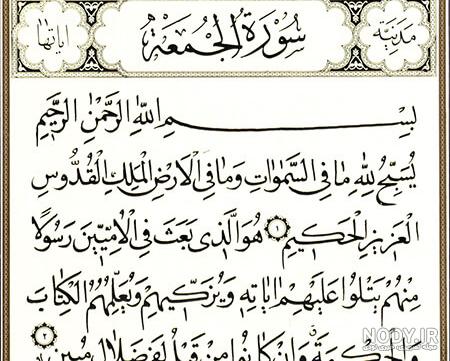 مدنية سورة الجمعة اياتها
بِسْمِ اللّٰهِ الرَّحْمٰنِ الرَّحٖيمِ
يُسَبِّحُ لِلّٰهِ مَا فِى السَّمٰوَاتِ وَمَا فِى الْاَرْضِ الْمَلِكِ الْقُدُّوسِ
الْعَزٖيزِ الْحَكٖيمِ ١ هُوَ الَّذٖى بَعَثَ فِى الْاُمِّيّٖنَ رَسُولًا
مِنْهُمْ يَتْلُوا عَلَيْهِمْ اٰيَاتِهٖ وَيُزَكّٖيهِمْ وَيُعَلِّمُهُمُ الْكِتَابَ
وَالْحِكْمَةَ وَاِنْ كَانُوا مِنْ قَبْلُ لَفٖى ضَلَالٍ مُبٖينٍ ٢
NODY.IR